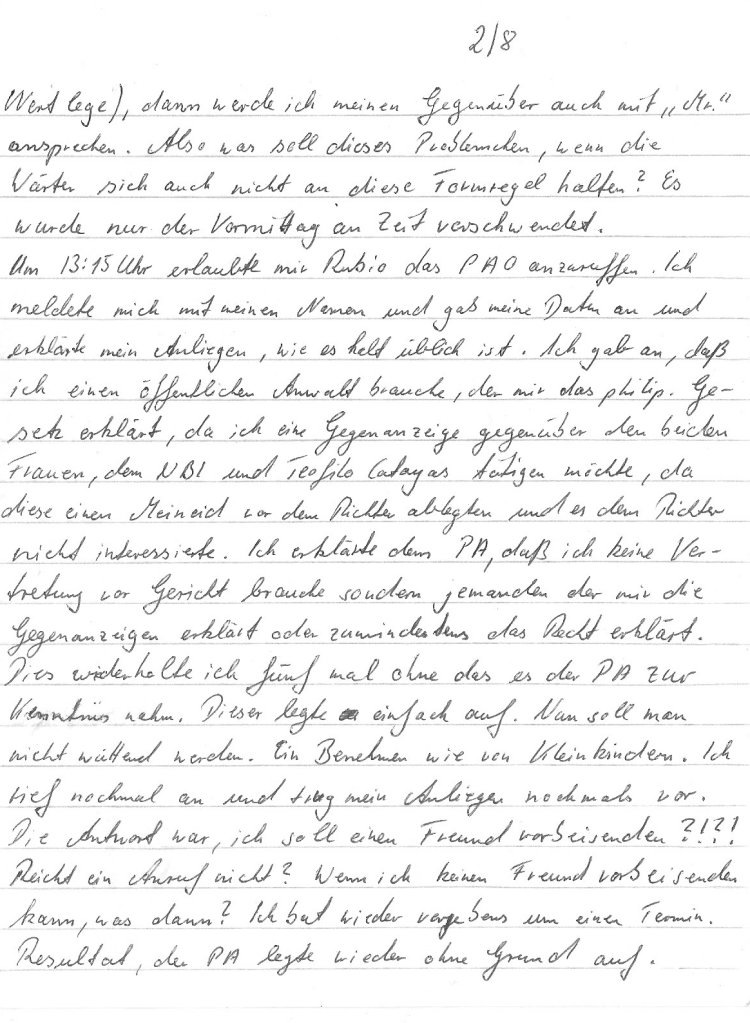 2/8
Wert lege), dann werde ich meinen Gegenüber auch mit „Mr.“
ansprechen. Also was soll dieses Problemchen, wenn die
Wärter sich auch nicht an diese Formregel halten? Es
wurde nur der Vormittag an Zeit verschwendet.
Um 13:15 Uhr erlaubte mir Rubio das PAO anzuruffen. Ich
meldete mich mit meinen Namen und gab meine Daten an und
erklärte mein Anliegen, wie es halt üblich ist. Ich gab an, daß
ich einen öffentlichen Anwalt brauche, der mir das philip. Ge-
setz erklärt, da ich eine Gegenanzeige gegenüber den beiden
Frauen, dem NBI und Teofilo Catayas tätigen möchte, da
diese einen Meineid vor dem Richter ablegten und es dem Richter
nicht interessierte. Ich erklärte dem PA, daß ich keine Ver-
tretung vor Gericht brauche sondern jemanden der mir die
Gegenanzeigen erklärt oder zumindestens das Recht erklärt.
Dies widerholte ich fünf mal ohne das es der PA zur
Kenntnis nahm. Dieser legte einfach auf. Nun soll man
nicht wüttend werden. Ein Benehmen wie von Kleinkindern. Ich
rief nochmal an und trug mein Anliegen nochmals vor.
Die Antwort war, ich soll einen Freund vorbeisenden ?!?!
Reicht ein Anruf nicht? Wenn ich keinen Freund vorbeisenden
kann, was dann? Ich bat wieder vergebens um einen Termin.
Resultat, der PA legte wieder ohne Grund auf.